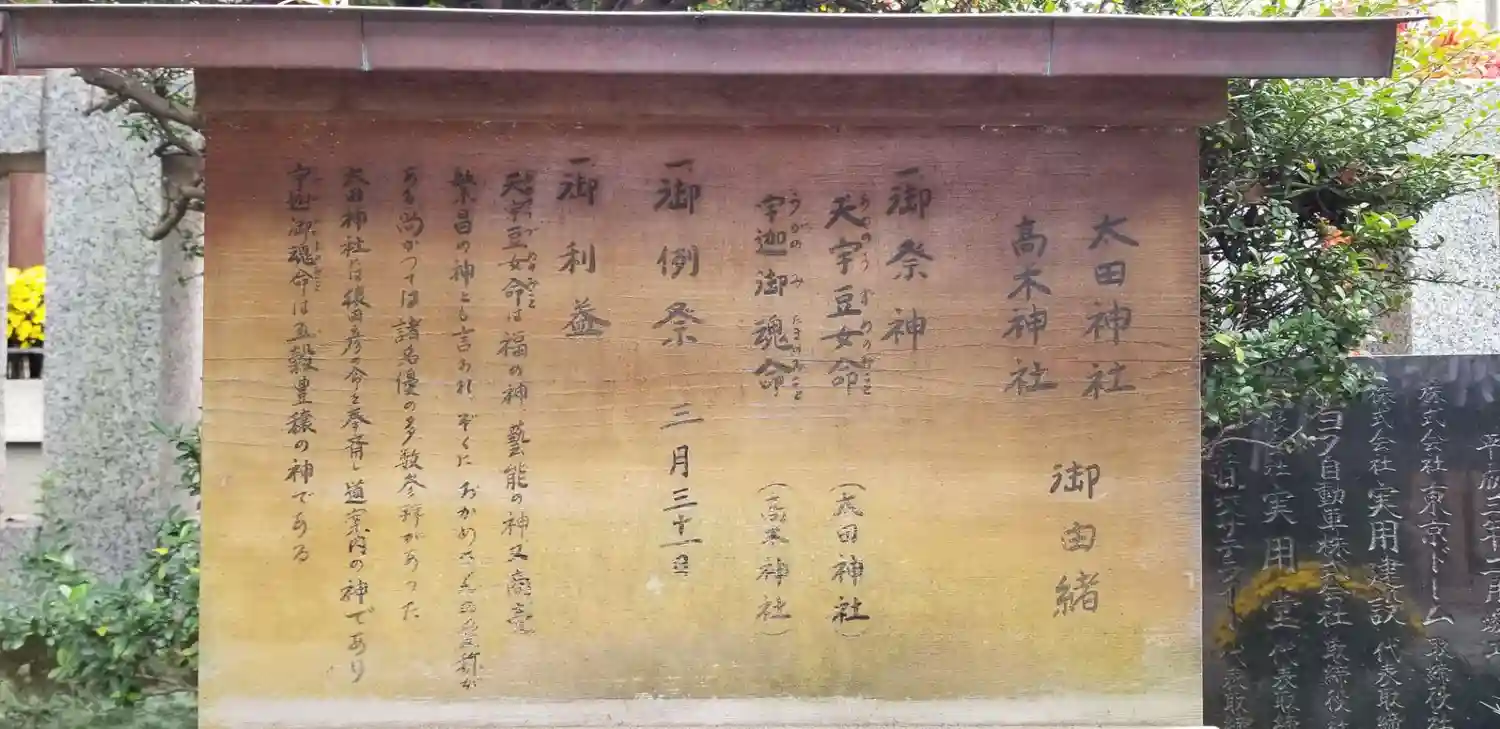 太田神社
高木神社
御由緒
一御祭神
天宇豆女命（太田神社）
あめのうずめのみこと
宇迦御魂命（高木神社）
うがのみたまのみこと
一御例祭 三月三十一日
一御利益
天宇豆女命は福の神、藝能の神又商売
繁昌の神とも言われ ぞくにおかめさんの愛称が
ある 尚かつては諸名優の多数参拝があった
太田神社には猿田彦命を奉斎し道案内の神であり
宇迦御魂命は五穀豊穣の神である
株式会社東京ドーム 取締役社
株式会社実用建設 代表取締
自動車株式会社 取締役社
実用堂 代表取締